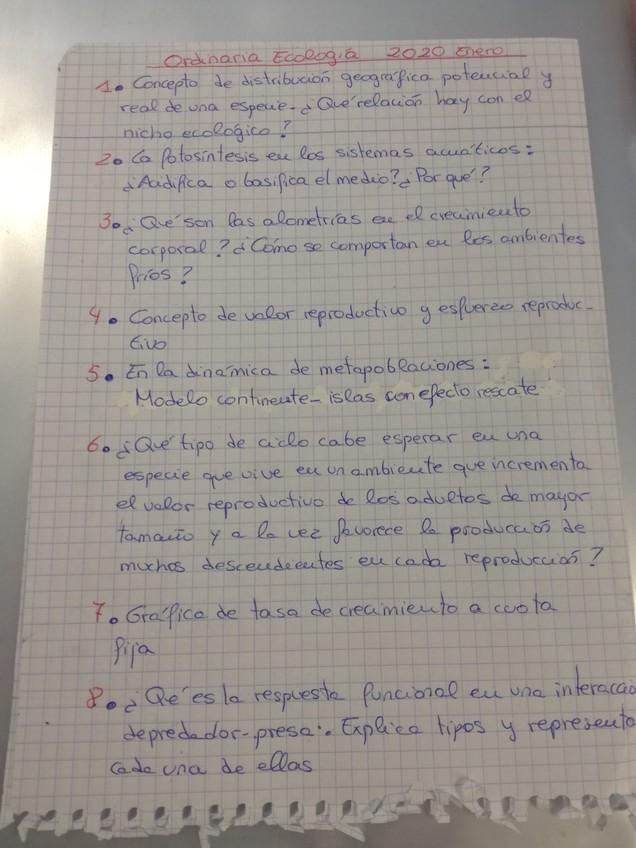 Ordinaria Ecología 2020 Enero
1. Concepto de distribución geográfica potencial y
real de una especie. ¿Qué relación hay con el
nicho ecológico?
2. La fotosíntesis en los sistemas acuáticos:
¿Acidifica o basifica el medio? ¿Por qué?
3. ¿Qué son las alometrías en el crecimiento
corporal? ¿Cómo se comportan en los ambientes
fríos?
4. Concepto de valor reproductivo y esfuerzo reproduc-
tivo
5. En la dinámica de metapoblaciones:
Modelo continente-islas con efecto rescate
6. ¿Qué tipo de ciclo cabe esperar en una
especie que vive en un ambiente que incrementa
el valor reproductivo de los adultos de mayor
tamaño y a la vez favorece la producción de
muchos descendientes en cada reproducción?
7. Gráfica de tasa de crecimiento a cuota
fija
8. ¿Qé es la respuesta funcional en una interacció
depredador-presa:. Explica tipos y representa
cada una de ellas